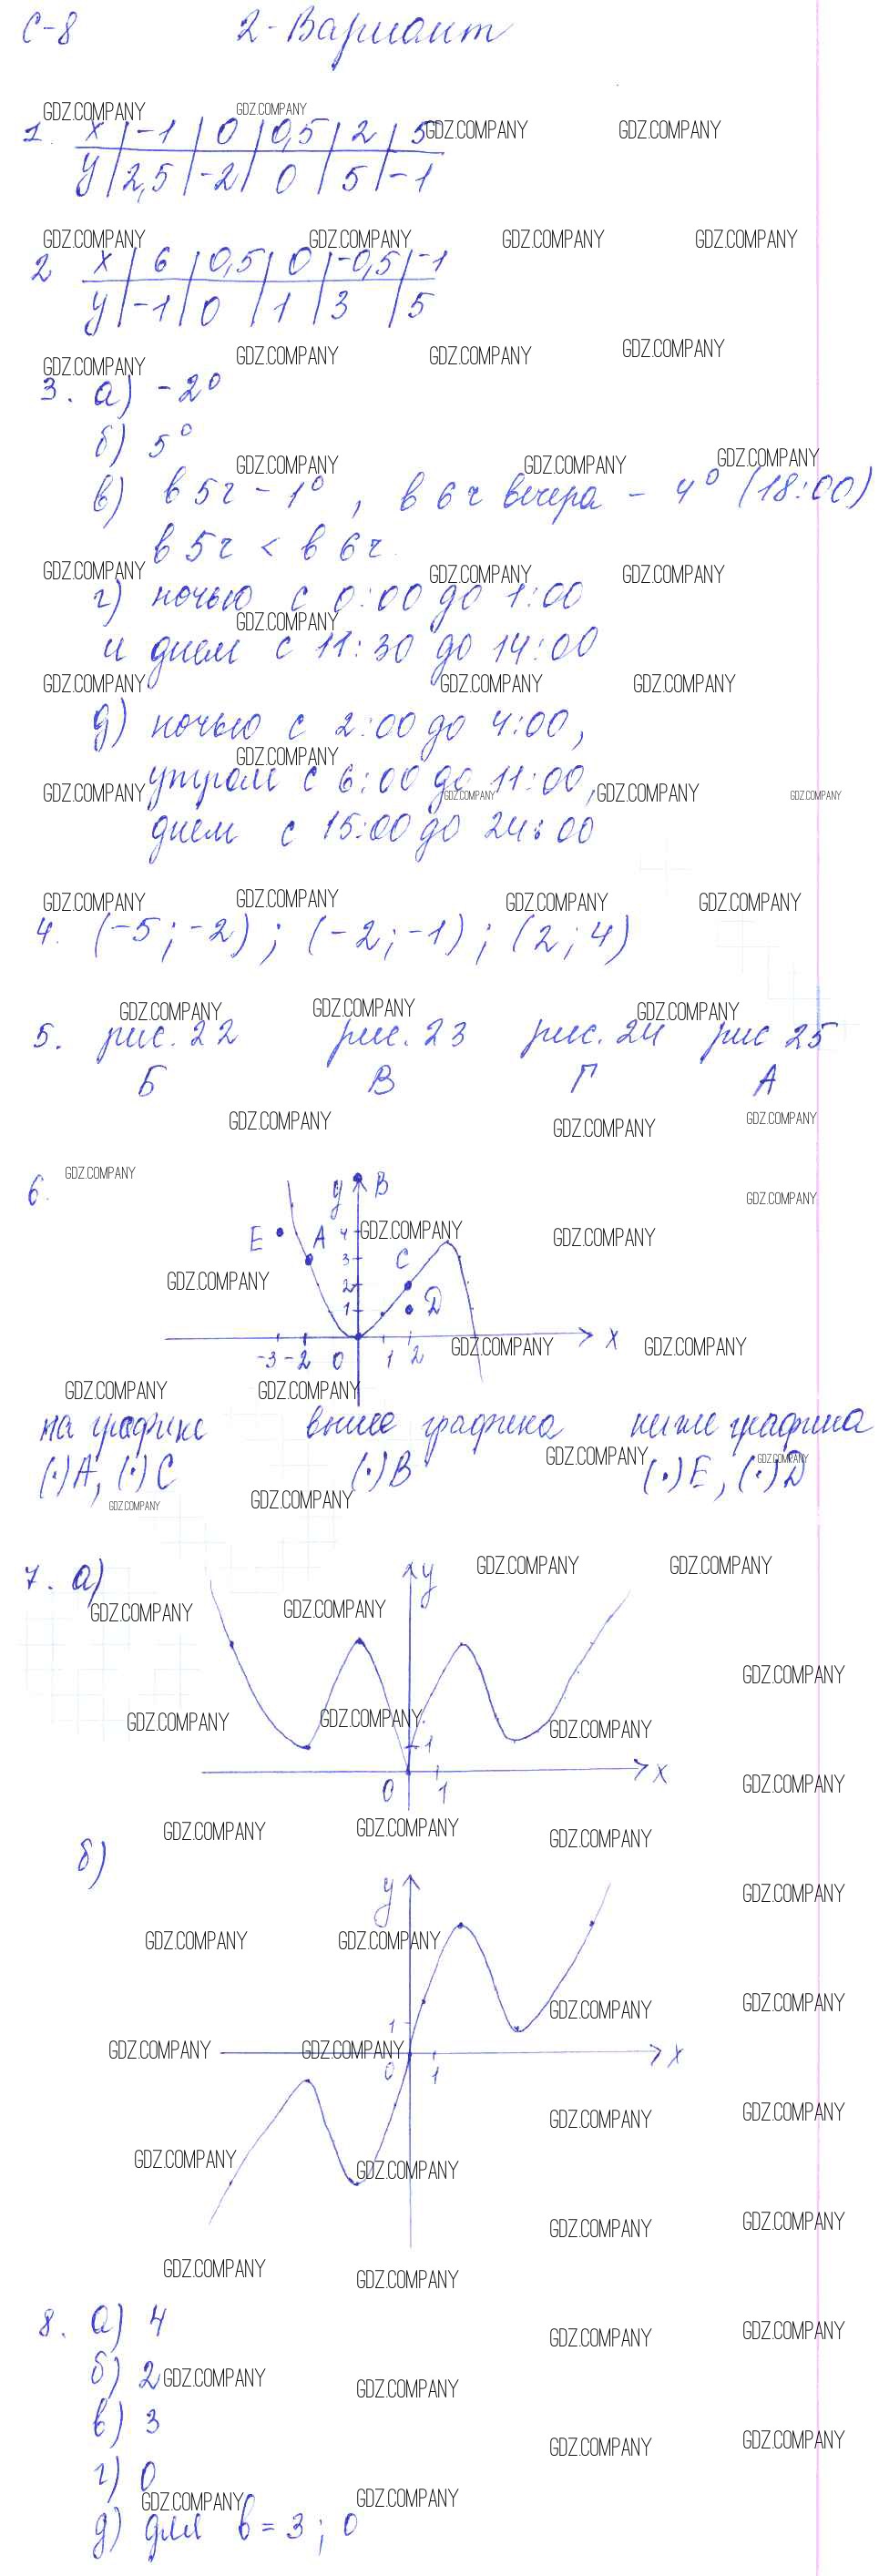 С-8 2-Вариант
1. x | -1 | 0 | 0,5 | 2 | 5
y | 2,5 | -2 | 0 | 5 | -1
2 x | 6 | 0,5 | 0 | -0,5 | -1
y | -1 | 0 | 1 | 3 | 5
3. а) -2°
б) 5°
в) в 5ч - 1°, в 6ч вечера - 4° (18:00)
в 5ч < в 6ч.
г) ночью с 0:00 до 1:00
и днем с 11:30 до 14:00
д) ночью с 2:00 до 4:00,
утром с 6:00 до 11:00,
днем с 15:00 до 24:00
4. (-5; -2); (-2; -1); (2; 4)
5. рис. 22 рис. 23 рис. 24 рис 25
Б В Г А
6.
y B
E A 4
3 C
2
1 D
-3 -2 0 1 2 x
на графике выше графика ниже графика
(·)A, (·)C (·)B (·)E, (·)D
7. а)
y
1
0 1 x
б)
y
1
0 1 x
8. а) 4
б) 2
в) 3
г) 0
д) для b = 3; 0
GDZ.COMPANY